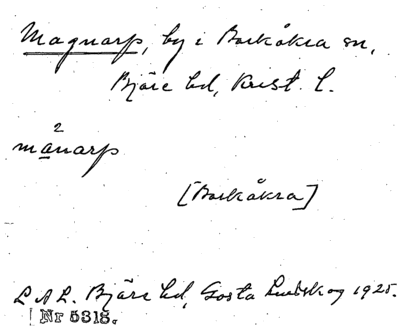 Magnarp, by i Barkåkra sn,
Bjäre hd, Krist. l.
2
månarp
[Barkåkra]
L A L. Bjäre hd, Gösta Ludskog 1925.
Nr 5318.